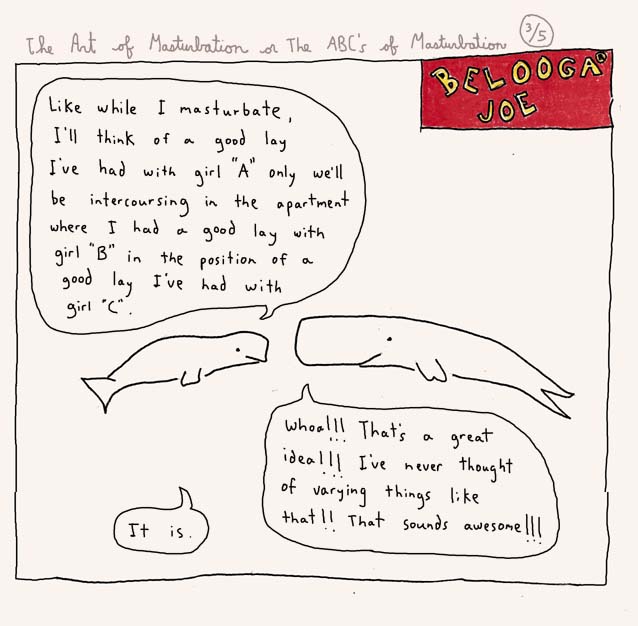 The Art of Masturbation or The ABC's of Masturbation 3/5
BELOOGA
JOE
Like while I masturbate,
I'll think of a good lay
I've had with girl "A" only we'll
be intercoursing in the apartment
where I had a good lay with
girl "B" in the position of a
good lay I've had with
girl "C".
Whoa!!! That's a great
idea!!! I've never thought
of varying things like
that!! That sounds awesome!!!
It is.